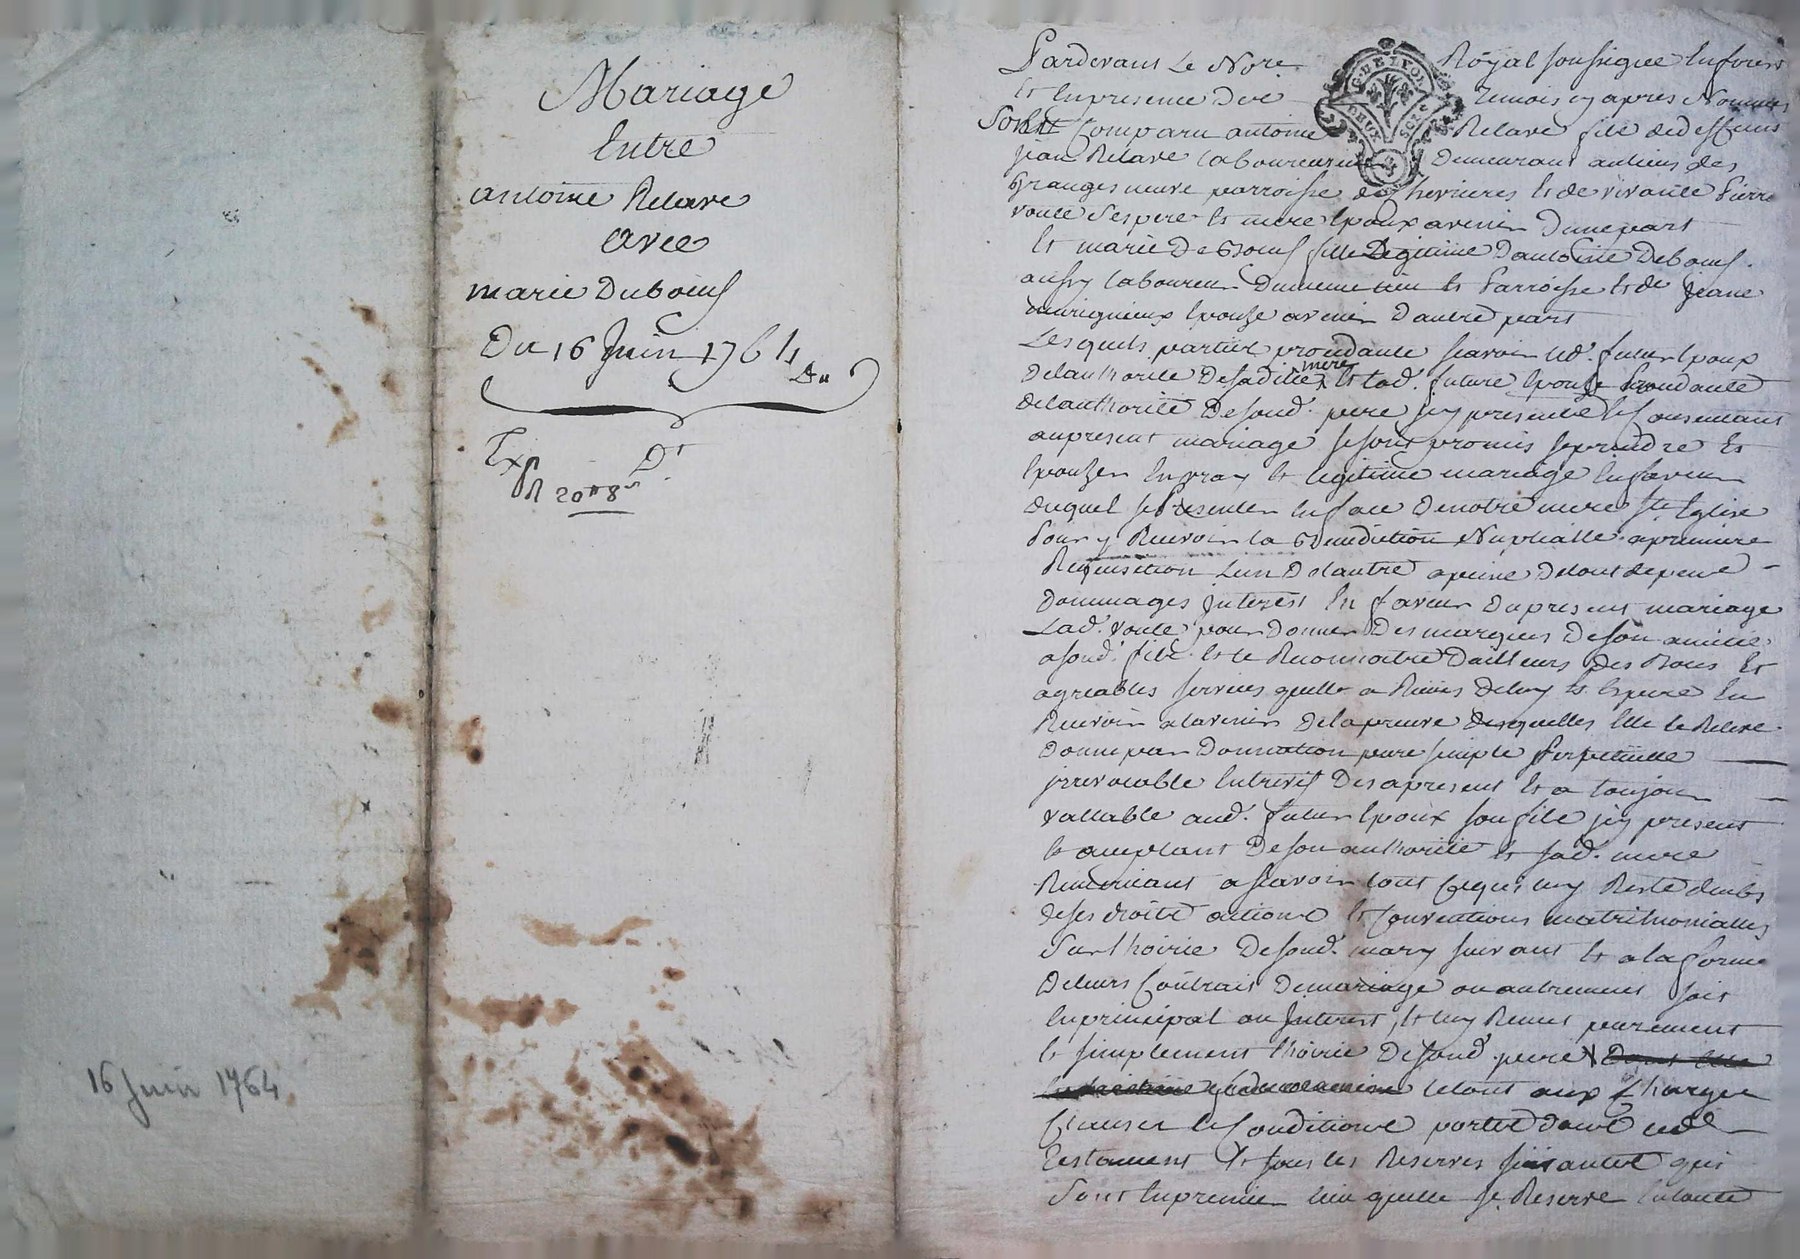 Mariage
Entre
antoine Relave
avec
marie Duboeuf
Du 16 Juin 1764
Du
Exp Dt
R 20 8
16 Juin 1764
Pardevant Le Nore Royal soussigné En forest
Et En presence des Temoins cy apres Nommés
Sont Comparu antoine Relave fils de deffunt
jean Relave laboureur Demeurant au lieu des
Granges neuve parroisse de Chevrieres et de vivante Pierre
voute ses pere et mere Epoux avenir Dunepart
Et marie De Boeuf fille Legitime Dantoine Deboeuf
aussy laboureur Dumeme lieu et Parroisse et de jeane
murigneux Epouse avenir Dautre part
Lesquels parties procedante scavoir led. futur Epoux
Delauthorité De sadite mere et lad. future Epouse Procedante
Delauthorité De soud. pere jcy presente Et Consentant
aupresent mariage se sont promis se prendre et
Epouser En vray et legitime mariage En faveur
duquel se presenter En face Denotre mere Ste Eglise
Pour y Recevoir la Benediction Nuptialle apremiere
Requisition Lun Delautre apeine Detout depens
Dommages Interest En faveur Dupresent mariage
Lad. voute pour donner Des marques De son amitié
a soud. fils et le Reconnoitre Dailleurs Des Bons et
agreables services quelle a Reçus De luy et Espere En
Recevoir a lavenir De la preuve Desquelles Elle le Releve
Donne par Donnation pure simple Perpetuelle
jrrevocable Entrevifs Des apresent Et a toujour
vallable aud. futur Epoux son fils jcy present
Et acceptant De son authorité et sad. mere
Remerciant a scavoir tout ce qui luy Reste du
de ses droits actions et Conventions matrimonialles
Sur lhoirie De soud. mary suivant Et a la forme
De leurs Contrait Demariage ou autrement soit
En principal ou Interest, Et luy Remet purement
Et simplement lhoirie De soud. pere
le tout aux Charges
Clauses Et Conditions portés dans led.
Testament Et sous les Reserves suivantes qui
Sont En premier lieu quelle se Reserve